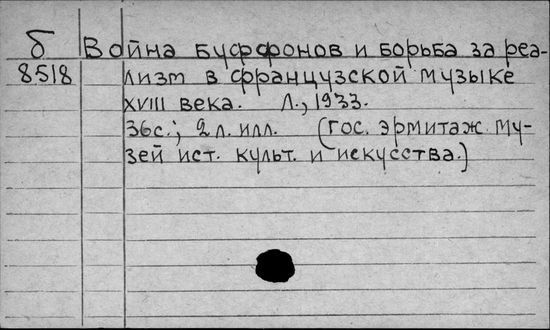 б Война буффонов и борьба за реа-
8518 лизм в французской музыке
XVIII века. Л., 1933.
36с.; 2 л. илл. (Гос. эрмитаж. Му-
зей ист. культ. и искусства.)